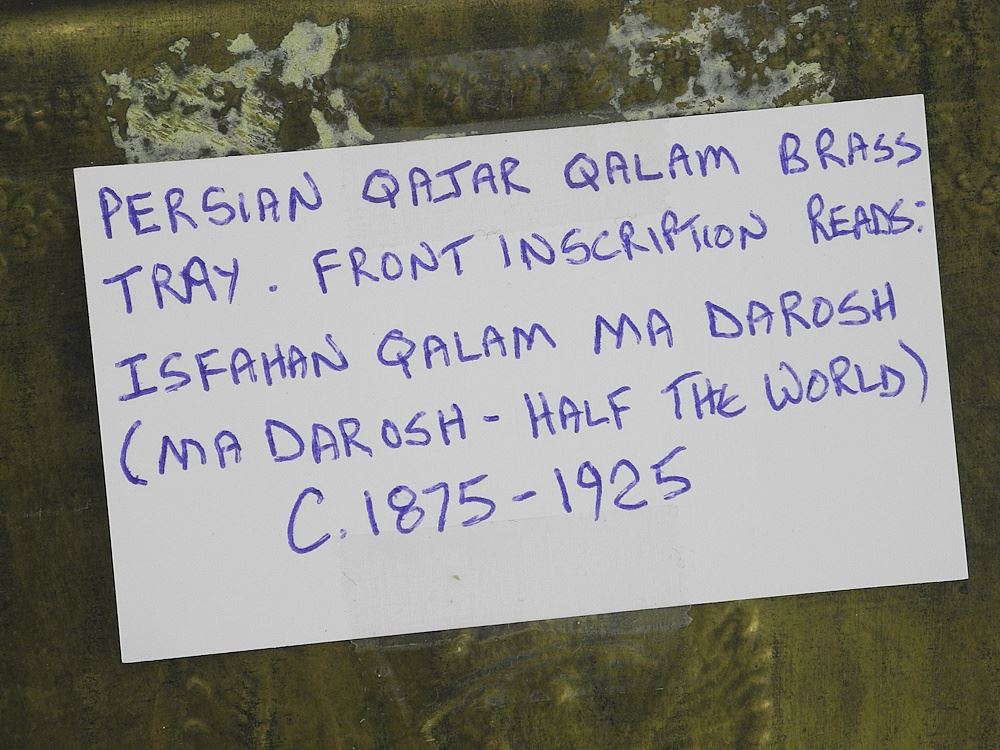 PERSIAN QAJAR QALAM BRASS
TRAY. FRONT INSCRIPTION READS:
ISFAHAN QALAM MA DAROSH
(MA DAROSH - HALF THE WORLD)
C. 1875-1925